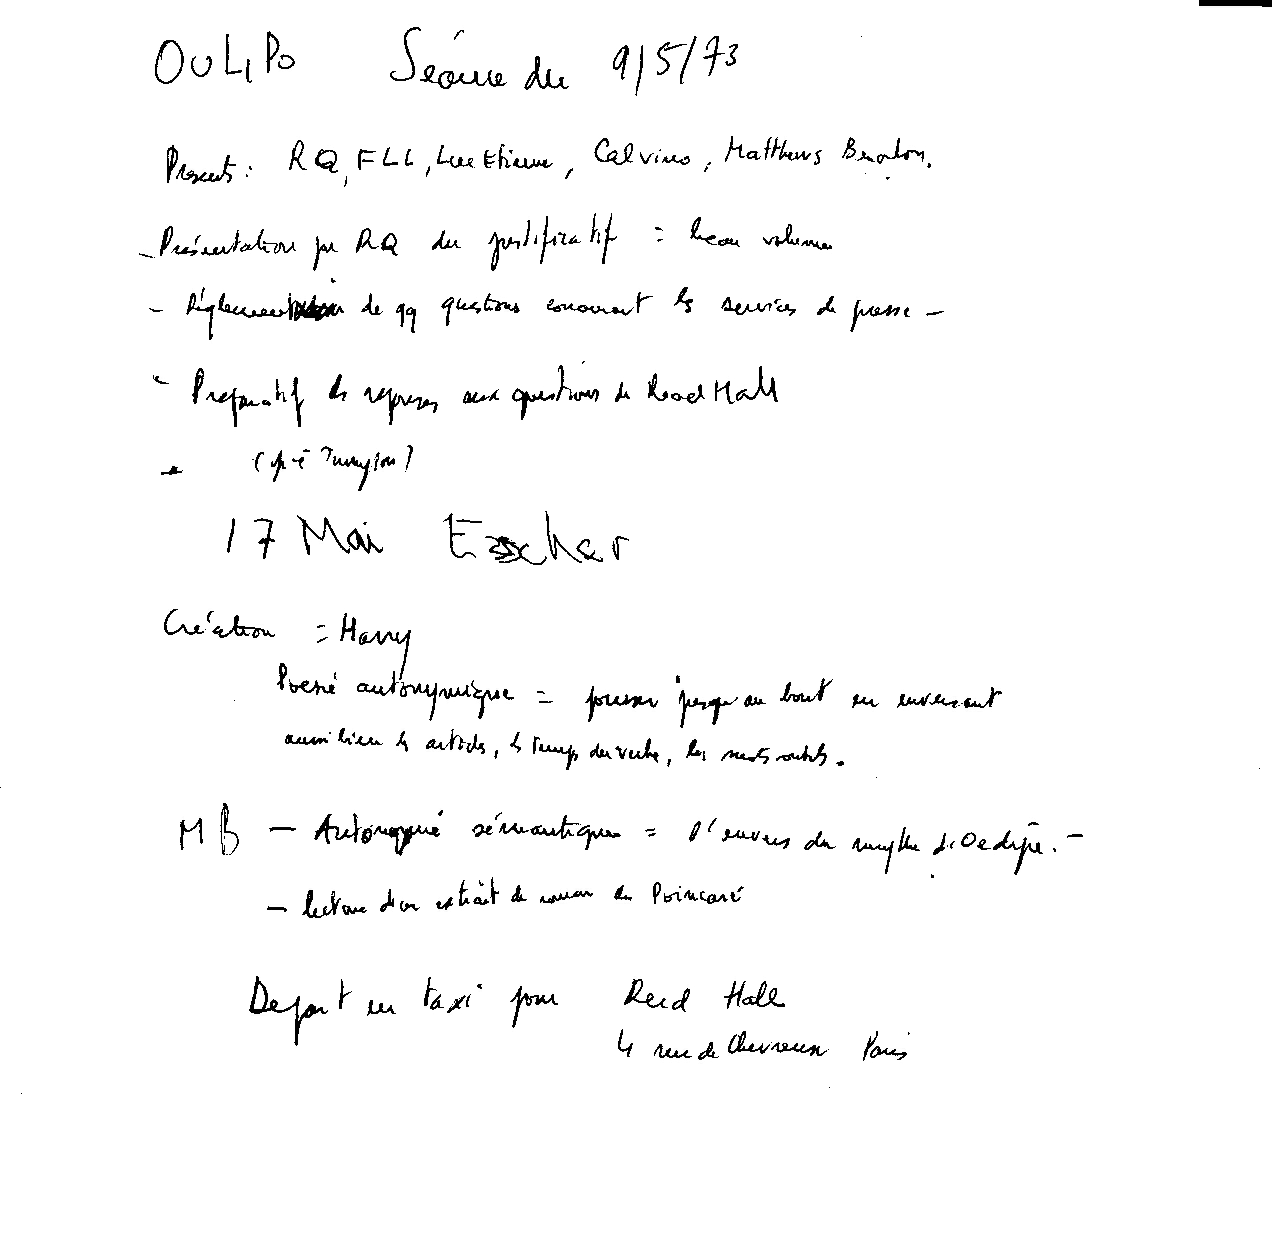 OULIPO Séance du 9/5/73
Présents : RQ, FLL, Luc Etienne, Calvino, Matthews Benabou.
- Présentation par RQ du justificatif = beau volume
- Réglementation de qq questions concernant les services de presse -
- Préparatif des réponses aux questions de Read Hall
17 Mai Escher
Création = Harry
Poésie antonymique = pousser jusqu'au bout en inversant
aussi bien les articles, les temps du verbe, les mots outils.
MB - Antonymie sémantique = l'envers du mythe d'Oedipe. -
- lecture d'un extrait de roman de Poincaré
Depart en taxi pour Reid Hall
4 rue de Chevreuse Paris